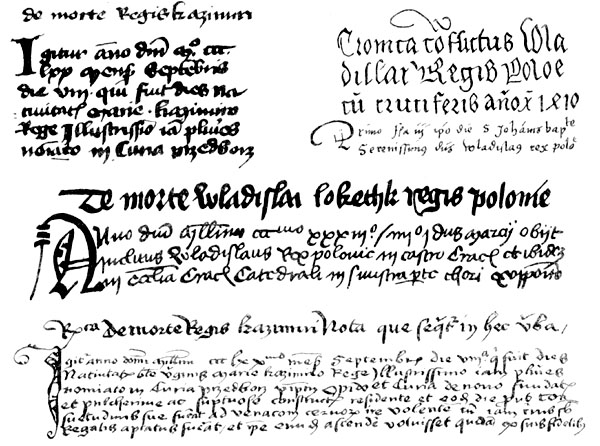 do morte Regis kazimiri
Igitur año dm̄ Mº ccc
lxx mens̄ Septembris
die viii qui fuit dies na
tiuitat̄ marie kazimiro
Rege Illustrissīo iā plures
noīato in Curia przedborz
Cronica cōflictus Wla
dislai Regis Poloē
cū cruciferis añox 1410
Primo die S Johānis bapte
Serenissimus dn̄s Wladislaus rex polo
De morte wladislai lokethk regis polonie
Anno dn̄i Millīmo ccc xxx iiiº idus marcij obijt
inclitus Wladislaus Rex polonie in castro Crac̄ et ibidē
in eccl̄ia Crac̄ Catedrali in sinistra ꝑte chori
De morte Regis kazimiri Nota que seq̄t̄ in hec v̄ba
Igit̄ anno dom̄i Millīmo ccc lxx mens̄ Septembris die viii q̄ fuit dies
Natiuitat̄ Virginis Marie kazimiro Rege Illustrissimo iam plures
nomiato in Curia przedborz et Curia de nouo fundat̄
et pulcherrime ac suptuose construct̄ residente et
suetudinis sue fuerat ad venacōem ceruox̄ ire volente
Regalis apatus fuerat, et ascendē voluisset quidā